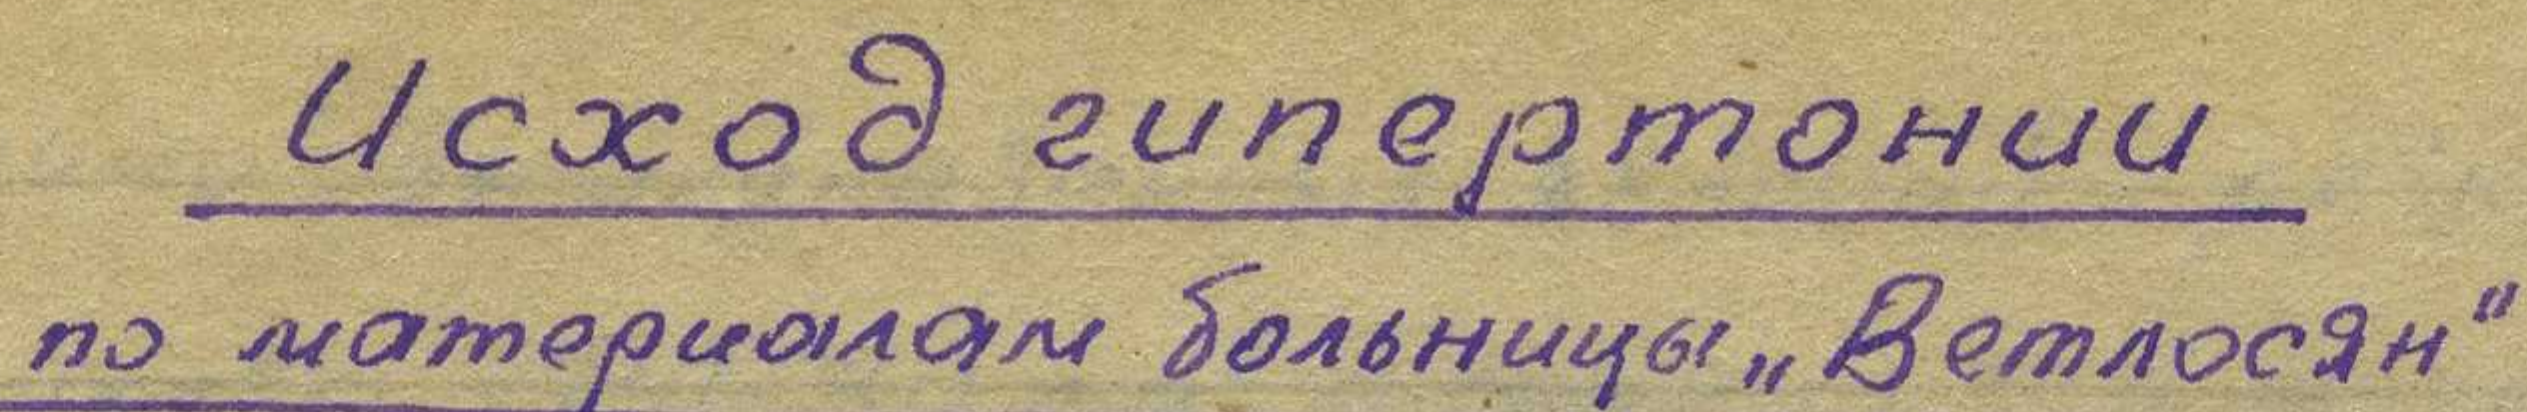 Исход гипертонии
по материалам больницы „Ветлосян“